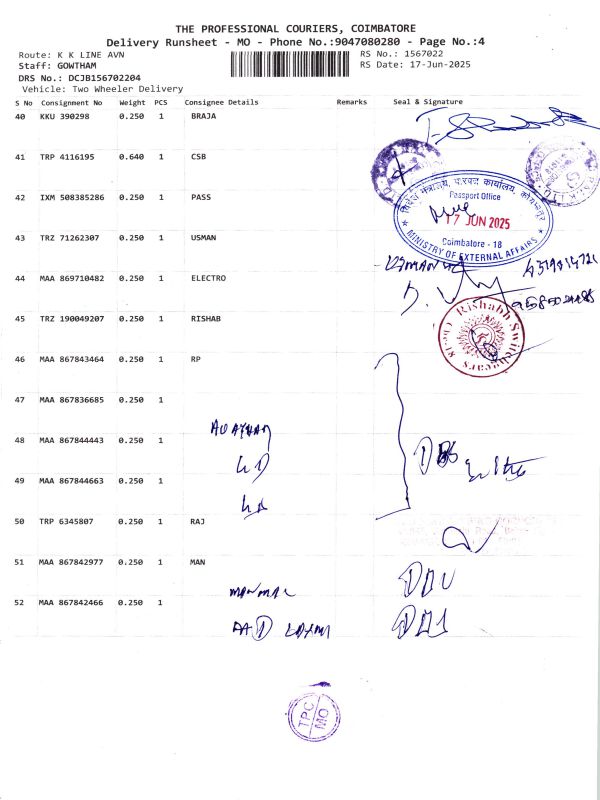 THE PROFESSIONAL COURIERS, COIMBATORE
Delivery Runsheet - MO - Phone No.:9047080280 - Page No.:4
Route: K K LINE AVN
RS No.: 1567022
Staff: GOWTHAM
RS Date: 17-Jun-2025
DRS No.: DCJB156702204
Vehicle: Two Wheeler Delivery
S No Consignment No Weight PCS Consignee Details Remarks Seal & Signature
40 KKU 390298 0.250 1 BRAJA
41 TRP 4116195 0.640 1 CSB
42 IXM 508385286 0.250 1 PASS
विदेश मंत्रालय, पारपत्र कार्यालय, कोयम्बत्तूर
Passport Office
17 JUN 2025
Coimbatore - 18
MINISTRY OF EXTERNAL AFFAIRS
43 TRZ 71262307 0.250 1 USMAN
USMAN
44 MAA 869710482 0.250 1 ELECTRO
45 TRZ 190049207 0.250 1 RISHAB
Rishabh Switchgears
46 MAA 867843464 0.250 1 RP
47 MAA 867836685 0.250 1
48 MAA 867844443 0.250 1
49 MAA 867844663 0.250 1
50 TRP 6345807 0.250 1 RAJ
51 MAA 867842977 0.250 1 MAN
52 MAA 867842466 0.250 1
TPC
MO